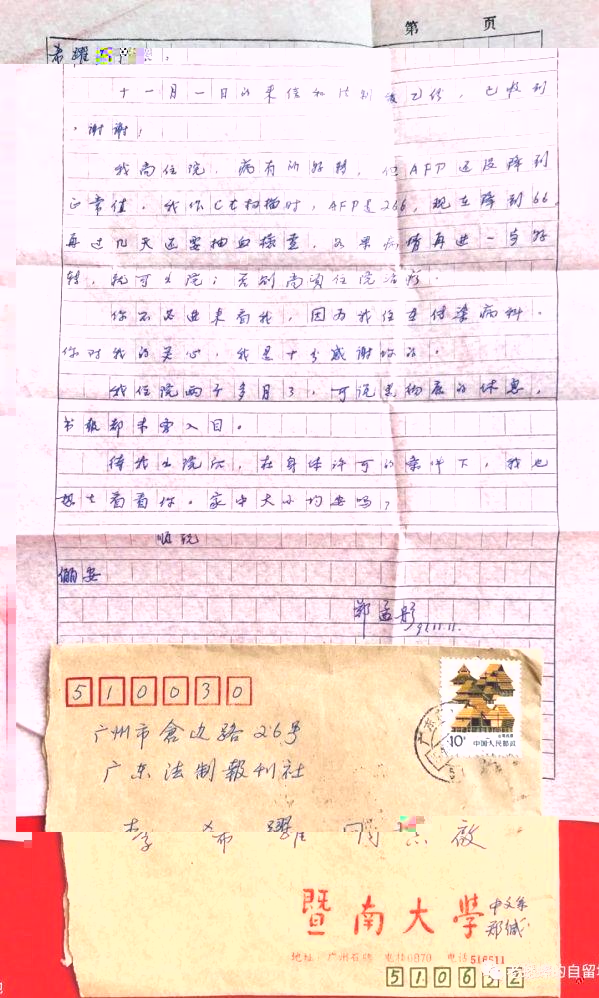 第 页
希耀
十一月一日的来信和法制报已给,已收到
,谢谢!
我尚住院,病有所好转,但AFP还没降到
正常值。我作CT扫描时,AFP是266,现在降到66。
再过几天还要抽血检查,如果病情再进一步好
转,就可出院;否则尚须住院治疗。
你不必进来看我,因为我住在传染病科。
你对我的关心,我是十分感谢你的。
我住院两个多月了,可说是彻底的休息,
书报都未曾入目。
待我出院后,在身体许可的条件下,我也
想去看看你。家中大小均安吗?
顺祝
俪安
郑孟彤
91.11.11.
510030
广州市仓边路26号
广东法制報刊社
李希耀 同志 啟
10分 中国人民邮政
暨南大學 中文系
郑缄
地址:广州石牌 电挂0870 电话516511
510632
的自留地